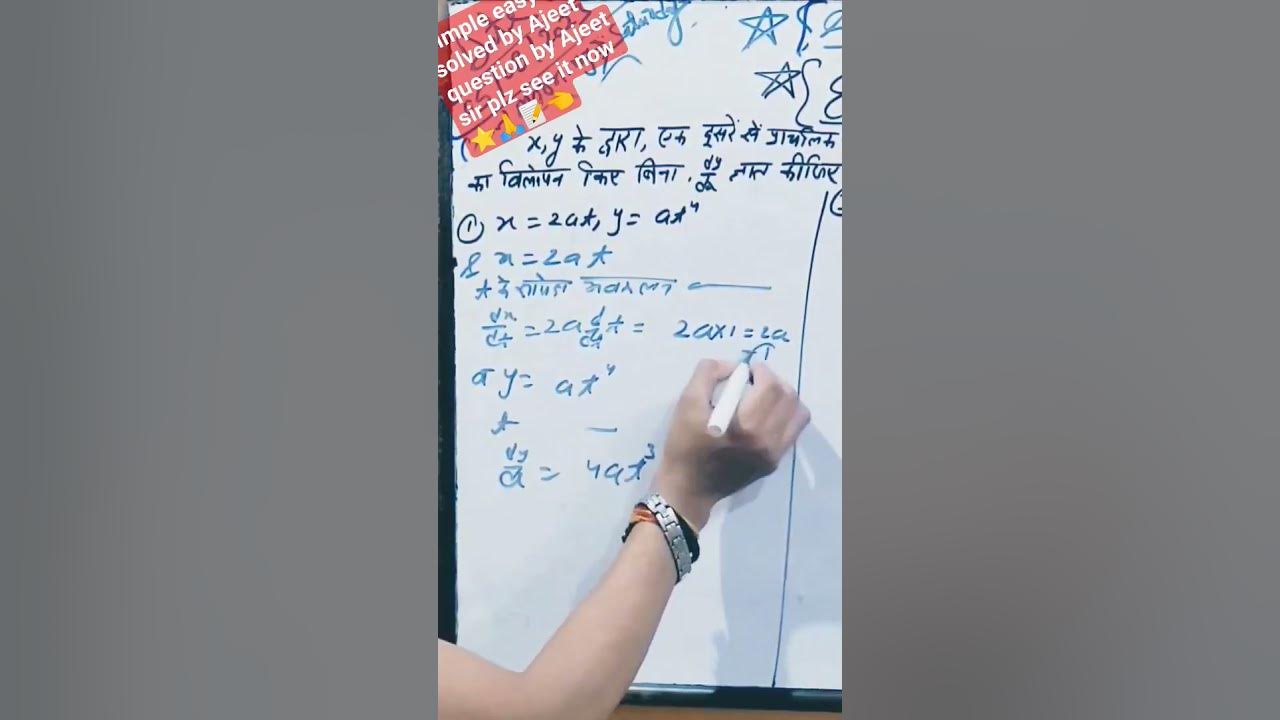 imple easy
solved by Ajeet
question by Ajeet
sir plz see it now
x, y के द्वारा, एक दूसरे से प्राचलिक
का विलोपन किए बिना, dy/dx ज्ञात कीजिए
① x = 2at, y = at⁴
x = 2at
t के सापेक्ष अवकलन
dx/dt = 2a d/dt t = 2a×1 = 2a
y = at⁴
t —
dy/dt = 4at³